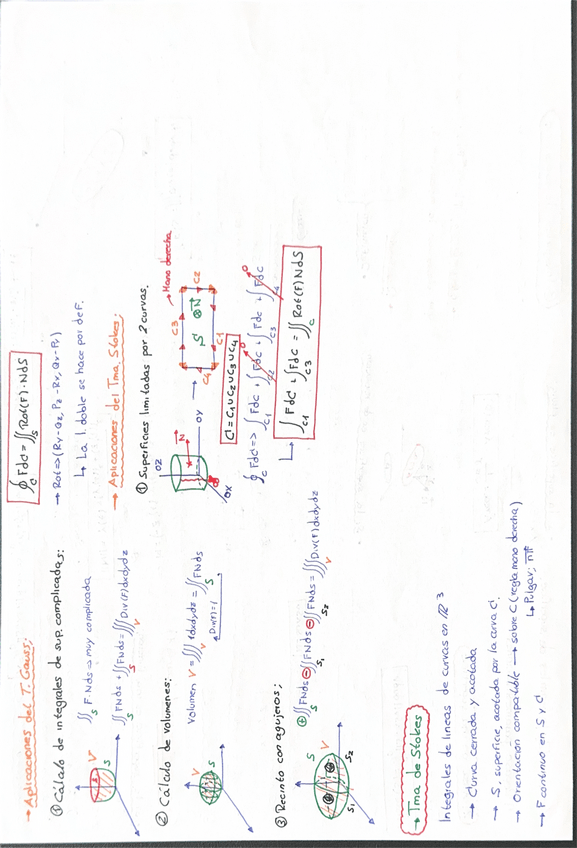 → Aplicaciones del T. Gauss:
① Cálculo de integrales de sup. complicadas:
∬_S F·N dS ⇒ muy complicada
∬_S FNdS + ∬_S FNdS = ∭_V Div(F)dxdydz
V
S
② Cálculo de volumenes:
Volumen V = ∭_V 1dxdydz = ∬_S FNdS
Div(F)=1
V
S
③ Recinto con agujeros:
⊕∬_S FNdS ⊖∬_S1 FNdS ⊖∬_S2 FNdS = ∭_V Div(F)dxdydz
S
V
S1
S2
→ Tma de Stokes
Integrales de lineas de curvas en ℝ³
→ Curva cerrada y acotada
→ S, superficie, acotada por la curva C.
→ Orientación compatible → sobre C (regla mano derecha)
↳ Pulgar;
→ F continuo en S y C
∮_C FdC = ∬_S Rot(F)·NdS
→ Rot ⇒ (Ry-Qz, Pz-Rx, Qx-Py)
↳ La I. doble se hace por def.
→ Aplicaciones del Tma. Stokes:
① Superficies limitadas por 2 curvas.
→ Mano derecha
OZ
N
OY
OX
C3
C2
S
⊗N
C4
C1
C = C1∪C2∪C3∪C4
∮_C FdC ⇒ ∫_C1 FdC + ∫_C2 FdC + ∫_C3 FdC + ∫_C4 FdC
0
0
↳ ∫_C1 FdC + ∫_C3 FdC = ∬_C Rot(F)NdS